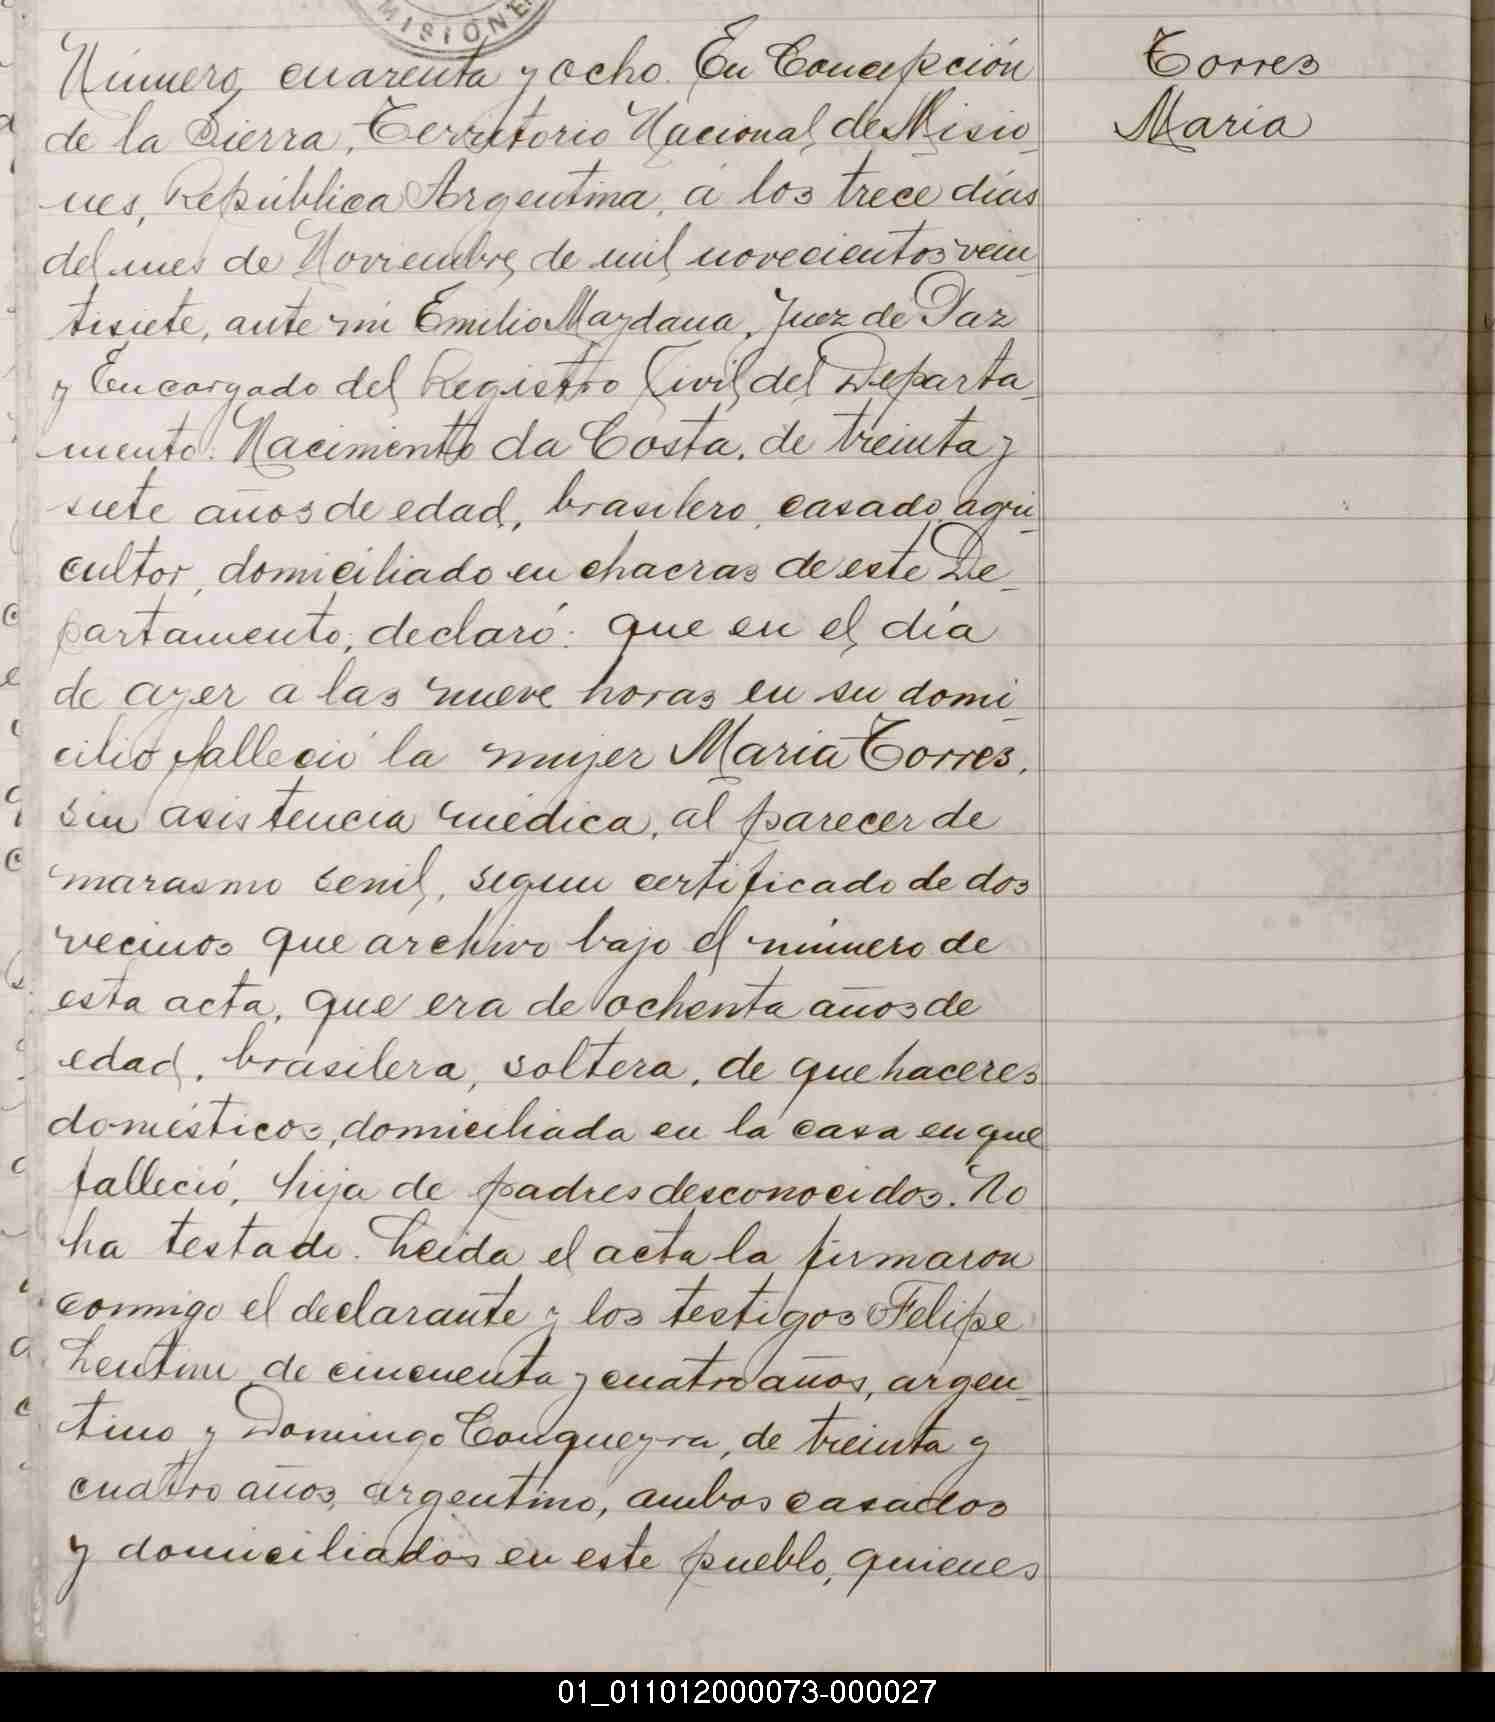 MISIONE
Número cuarenta y ocho. En Concepción
de la Sierra, Territorio Nacional de Misio_
nes, República Argentina, á los trece días
del mes de Noviembre de mil novecientos vein_
tisiete, ante mi Emilio Maydana, Juez de Paz
y Encargado del Registro Civil del Departa_
mento: Nacimento da Costa, de treinta y
siete años de edad, brasilero, casado, agri_
cultor, domiciliado en chacras de este De_
partamento, declaró: que en el día
de ayer a las nueve horas en su domi_
cilio falleció la mujer Maria Torres,
sin asistencia médica, al parecer de
marasmo senil, segun certificado de dos
vecinos que archivo bajo el número de
esta acta, que era de ochenta años de
edad, brasilera, soltera, de quehaceres
domésticos, domiciliada en la casa en que
falleció, hija de padres desconocidos. No
ha testado. Leida el acta la firmaron
conmigo el declarante y los testigos Felipe
de cincuenta y cuatro años, argen_
tino y Domingo Conqueyra, de treinta y
cuatro años, argentino, ambos casados
y domiciliados en este pueblo, quienes
Torres
Maria
01_011012000073-000027